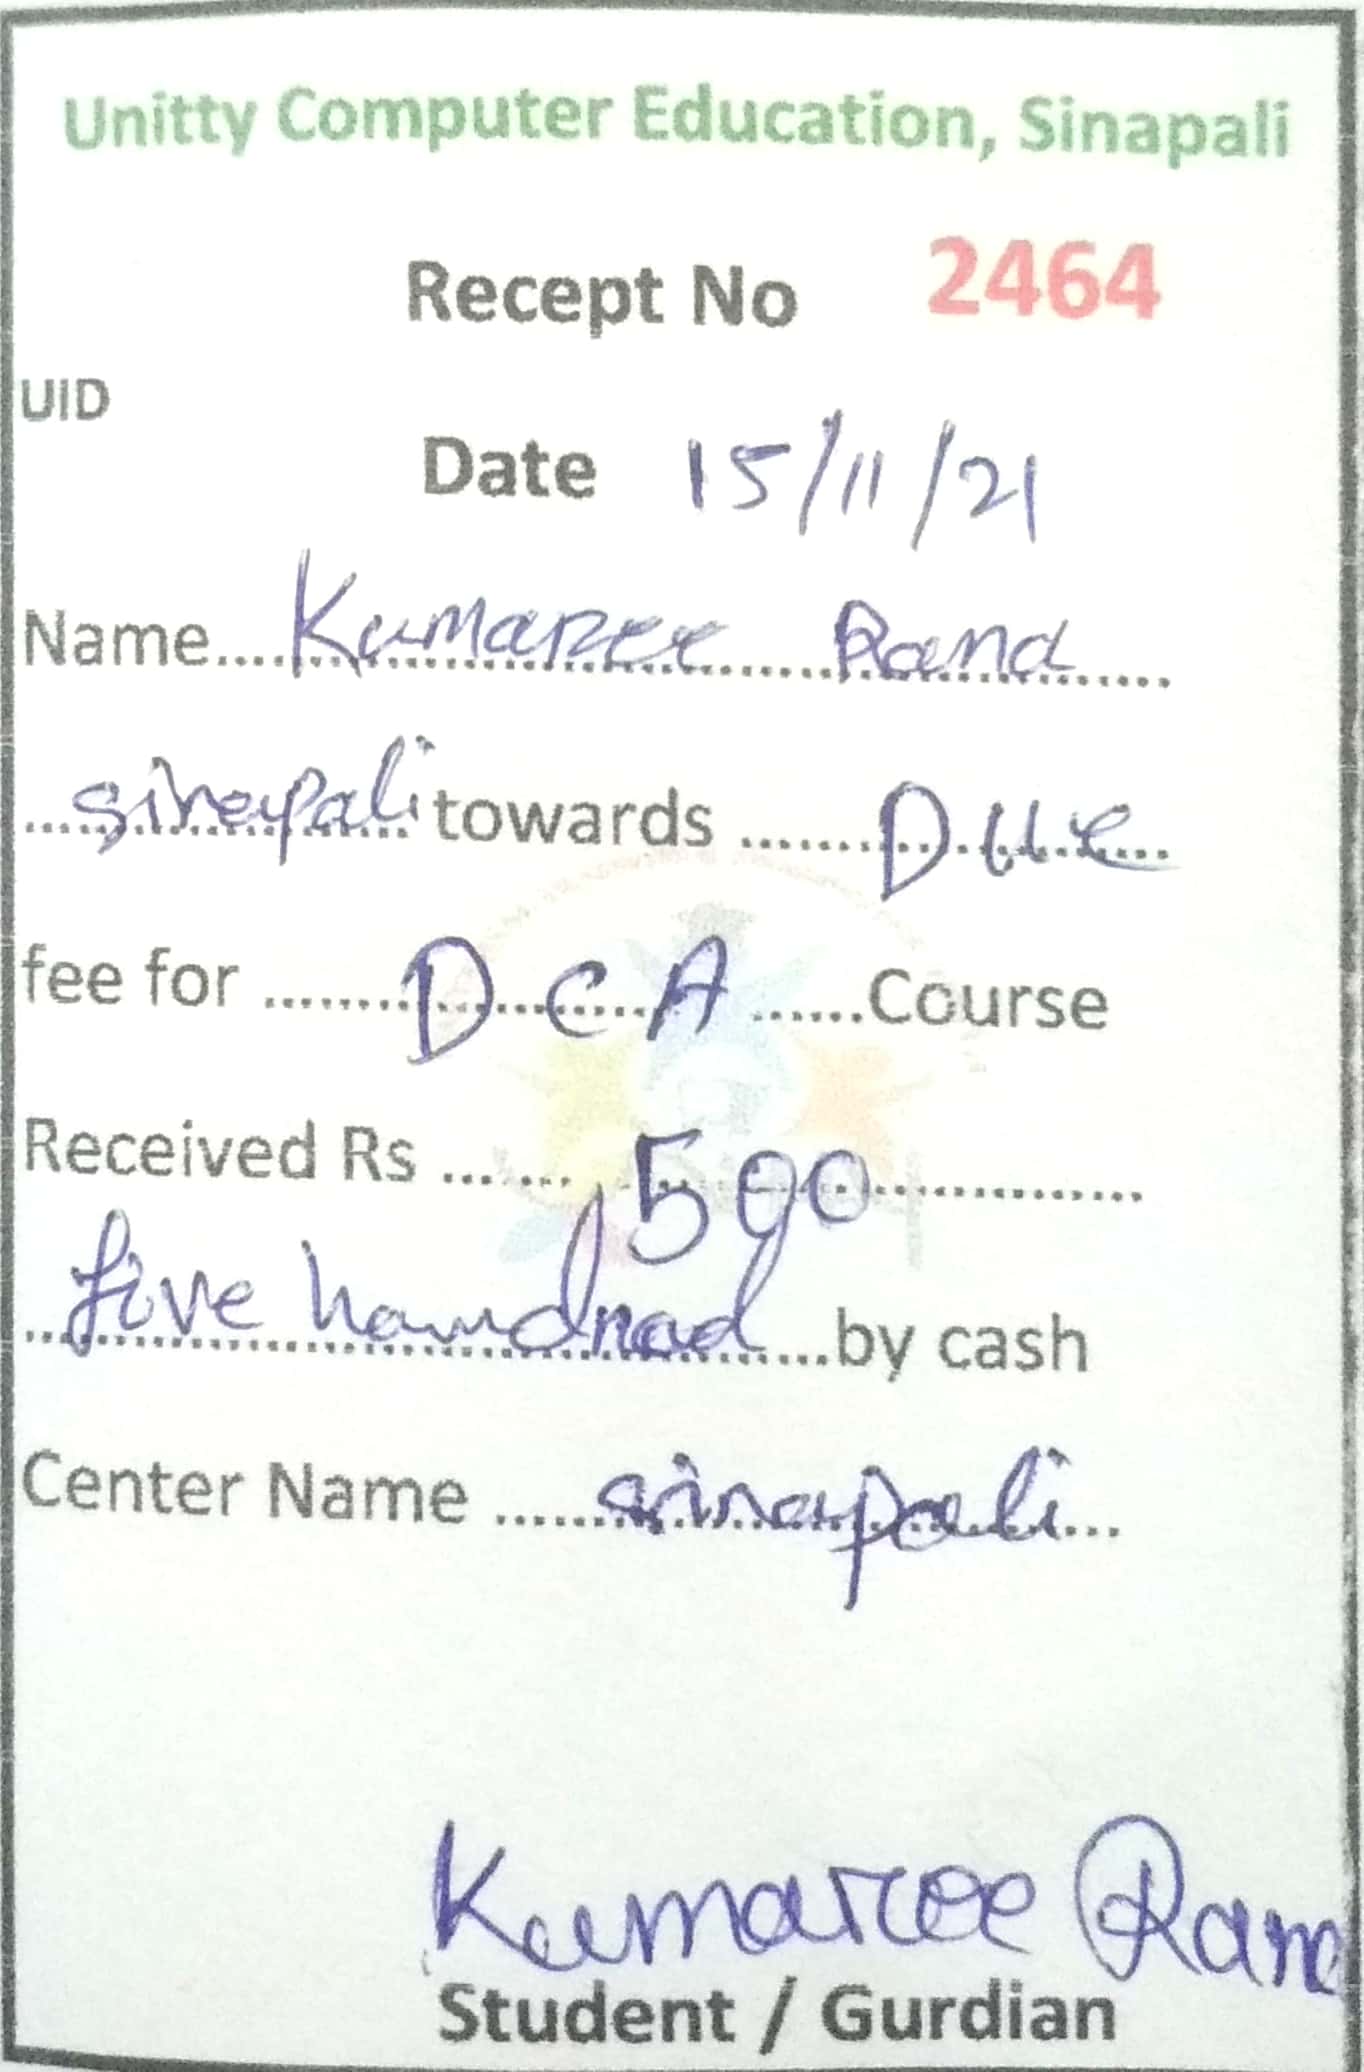 Unitty Computer Education, Sinapali
Recept No 2464
UID
Date 15/11/21
Name....Kumaree Rana....
....sinapali towards ....... Due....
fee for .......... D C A .......Course
Received Rs ....... 500 ..............
five handrad.....by cash
Center Name ....... sinapali....
Kumaree Rana
Student / Gurdian